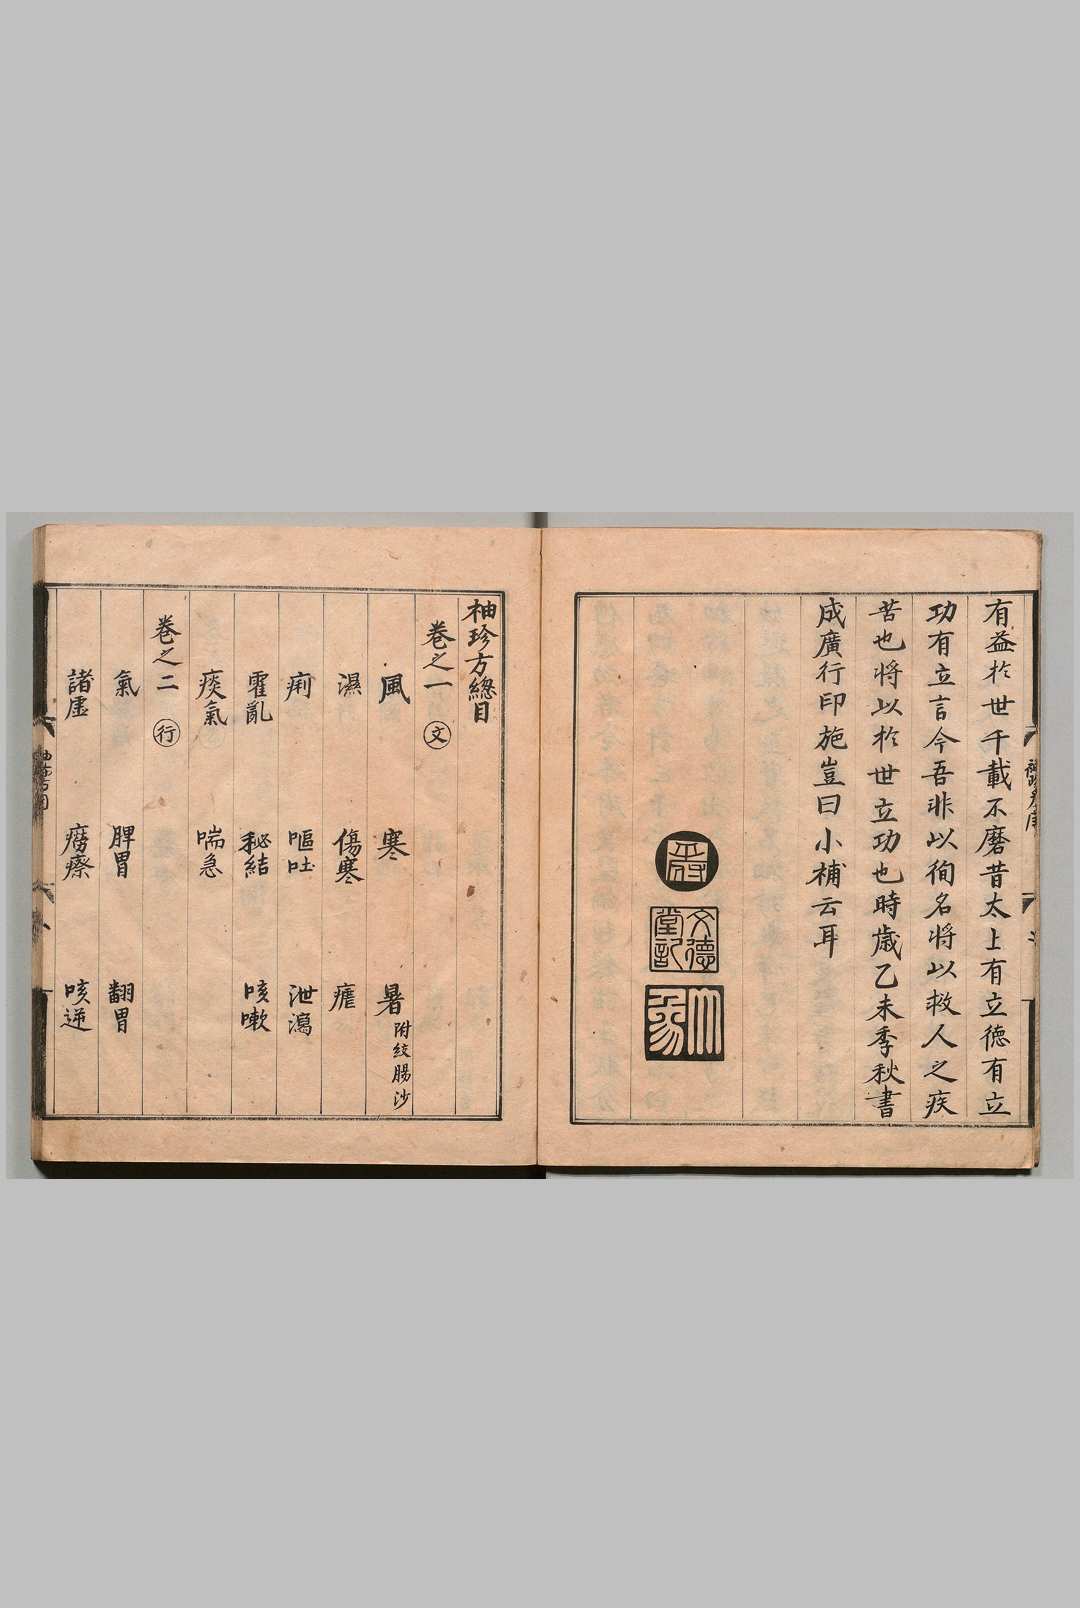 有益於世千載不磨昔太上有立德有立
功有立言今吾非以徇名將以救人之疾
苦也將以於世立功也時歲乙未季秋書
成廣行印施豈曰小補云耳
文德
堂記
袖珍方總目
卷之一 文
風 寒 暑 附絞腸沙
濕 傷寒 瘧
痢 嘔吐 泄瀉
霍亂 秘結 咳嗽
痰氣 喘急
卷之二 行
氣 脾胃 翻胃
諸虛 癆瘵 咳逆